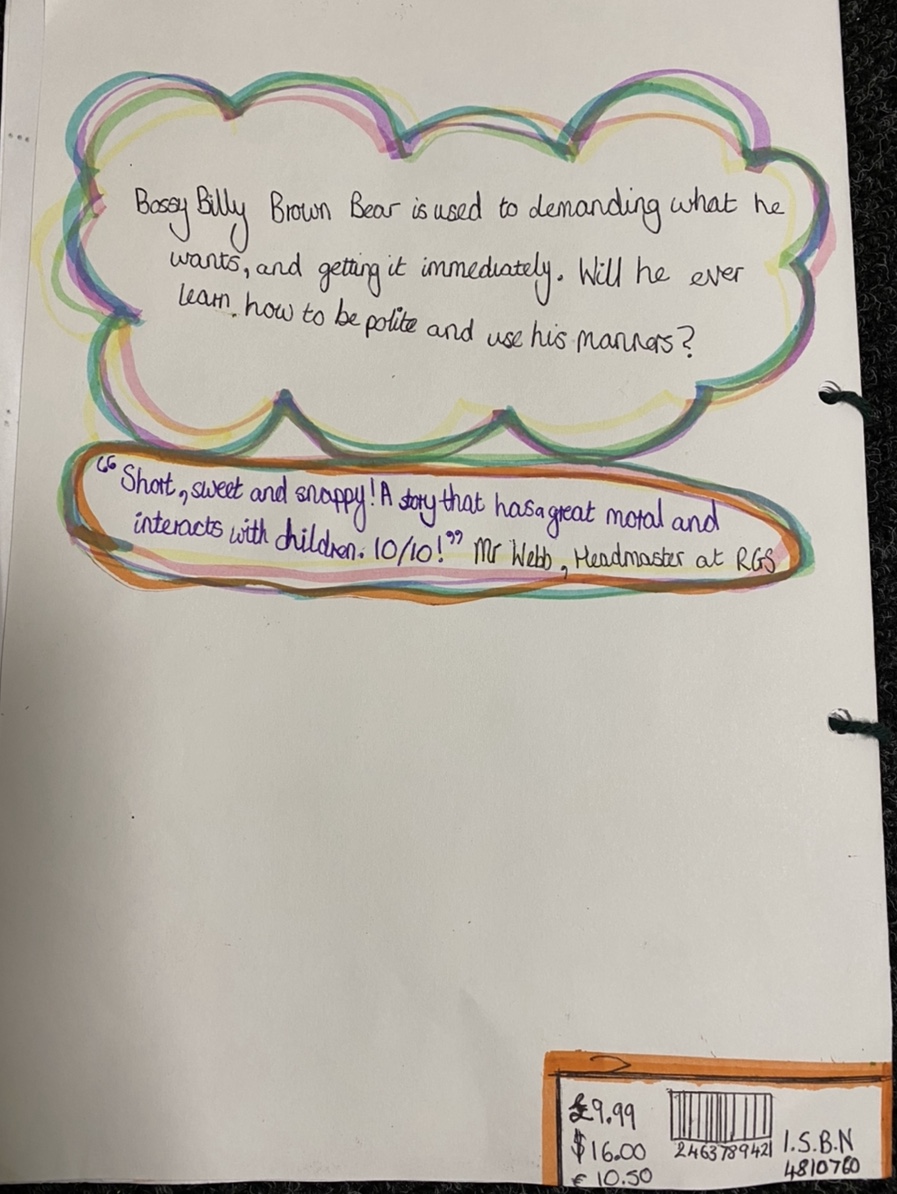 Bossy Billy Brown Bear is used to demanding what he
wants, and getting it immediately. Will he ever
learn how to be polite and use his manners?
“Short, sweet and snappy! A story that has a great moral and
interacts with children. 10/10!” Mr Webb, Headmaster at RGS
£9.99
$16.00
€ 10.50
2463789421
I.S.B.N
4810760